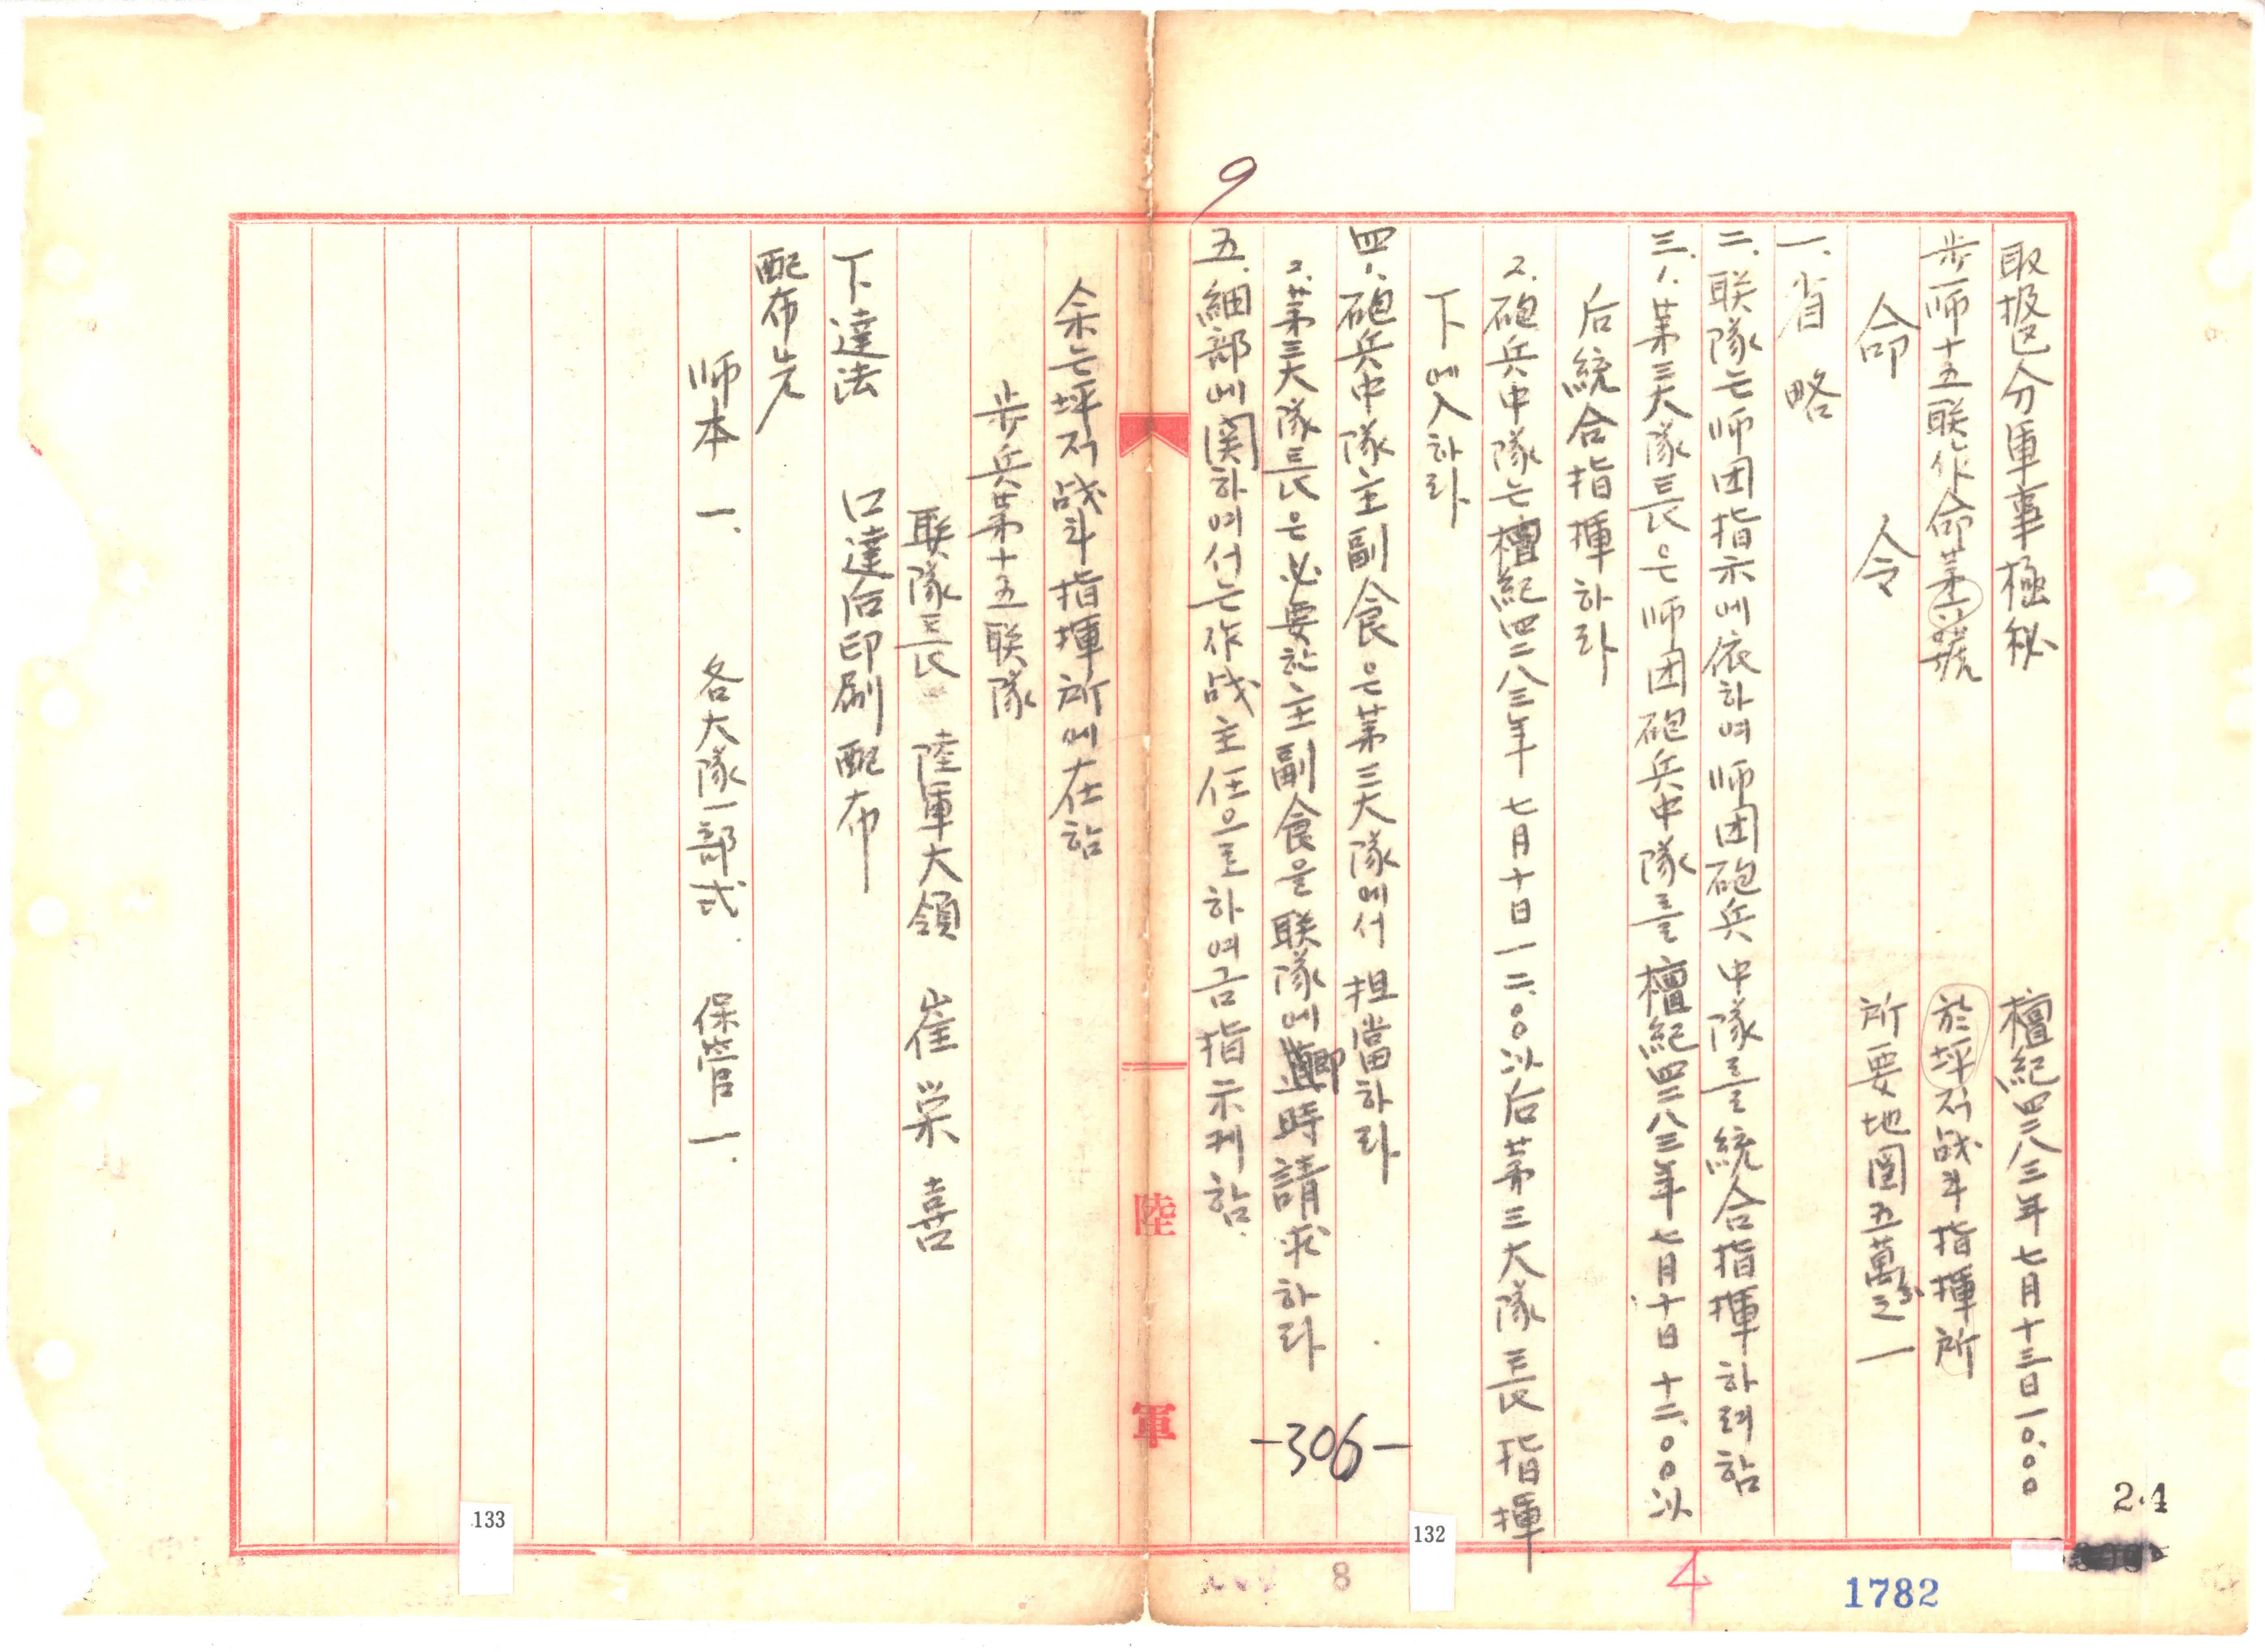 取扱区分軍事極秘 檀紀四二八三年七月十三日一〇.〇〇
步师十五联作命第 號 於坪村战斗指揮所
命令 所要地图五萬分之一
一. 省略
二. 联隊는师团指示에依하여师团砲兵中隊를統合指揮하려함
三. 1. 第三大隊長은师团砲兵中隊를檀紀四二八三年七月十日十二.〇〇以
后統合指揮하라
2. 砲兵中隊는檀紀四二八三年七月十日一二.〇〇以后第三大隊長指揮
下에入하라
四. 1. 砲兵中隊主副食은第三大隊에서担當하라
2. 第三大隊長은必要한主副食을联隊에卽時請求하라
五. 細部에関하여서는作战主任으로하여금指示케함.
余는坪村战斗指揮所에在함
步兵第十五联隊
联隊長 陸軍大領 崔栄喜
下達法 口達后印刷配布
配布先
师本一. 各大隊一部式. 保管一.
陸軍
9
-306-
133
132
24
8
4
1782